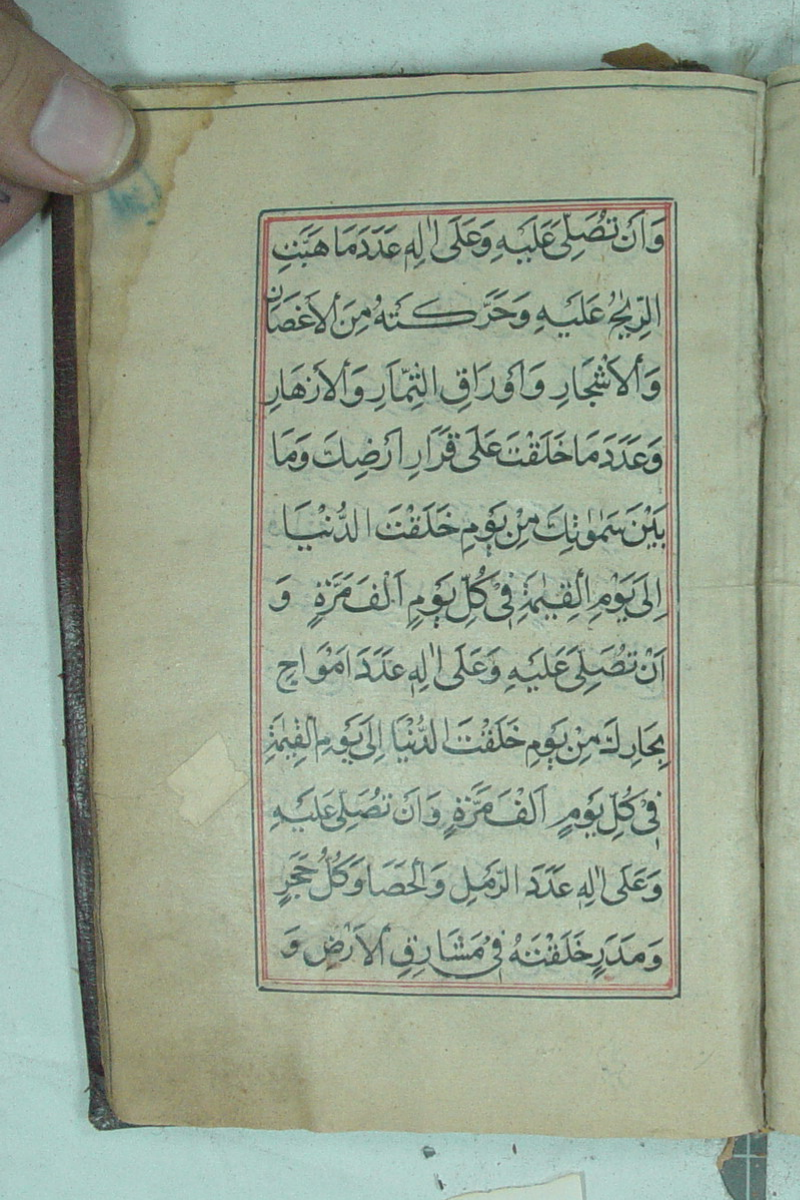 وَاَنْ تُصَلِّىَ عَلَيْهِ وَعَلَى اٰلِهٖ عَدَدَ مَا هَبَّتِ
الرِّيٰحُ عَلَيْهِ وَحَرَّكَتْهُ مِنَ الْاَغْصَانِ
وَالْاَشْجَارِ وَاَوْرَاقِ الثِّمَارِ وَالْاَزْهَارِ
وَعَدَدَ مَا خَلَقْتَ عَلَى قَرَارِ اَرْضِكَ وَمَا
بَيْنَ سَمٰوٰتِكَ مِنْ يَوْمِ خَلَقْتَ الدُّنْيَا
اِلَى يَوْمِ الْقِيٰمَةِ فِىْ كُلِّ يَوْمٍ اَلْفَ مَرَّةٍ وَ
اَنْ تُصَلِّىَ عَلَيْهِ وَعَلَى اٰلِهٖ عَدَدَ اَمْوَاجِ
بِحَارِكَ مِنْ يَوْمِ خَلَقْتَ الدُّنْيَا اِلَى يَوْمِ الْقِيٰمَةِ
فِىْ كُلِّ يَوْمٍ اَلْفَ مَرَّةٍ وَاَنْ تُصَلِّىَ عَلَيْهِ
وَعَلَى اٰلِهٖ عَدَدَ الرَّمْلِ وَالْحَصَا وَكُلِّ حَجَرٍ
وَمَدَرٍ خَلَقْتَهُ فِىْ مَشَارِقِ الْاَرْضِ وَ